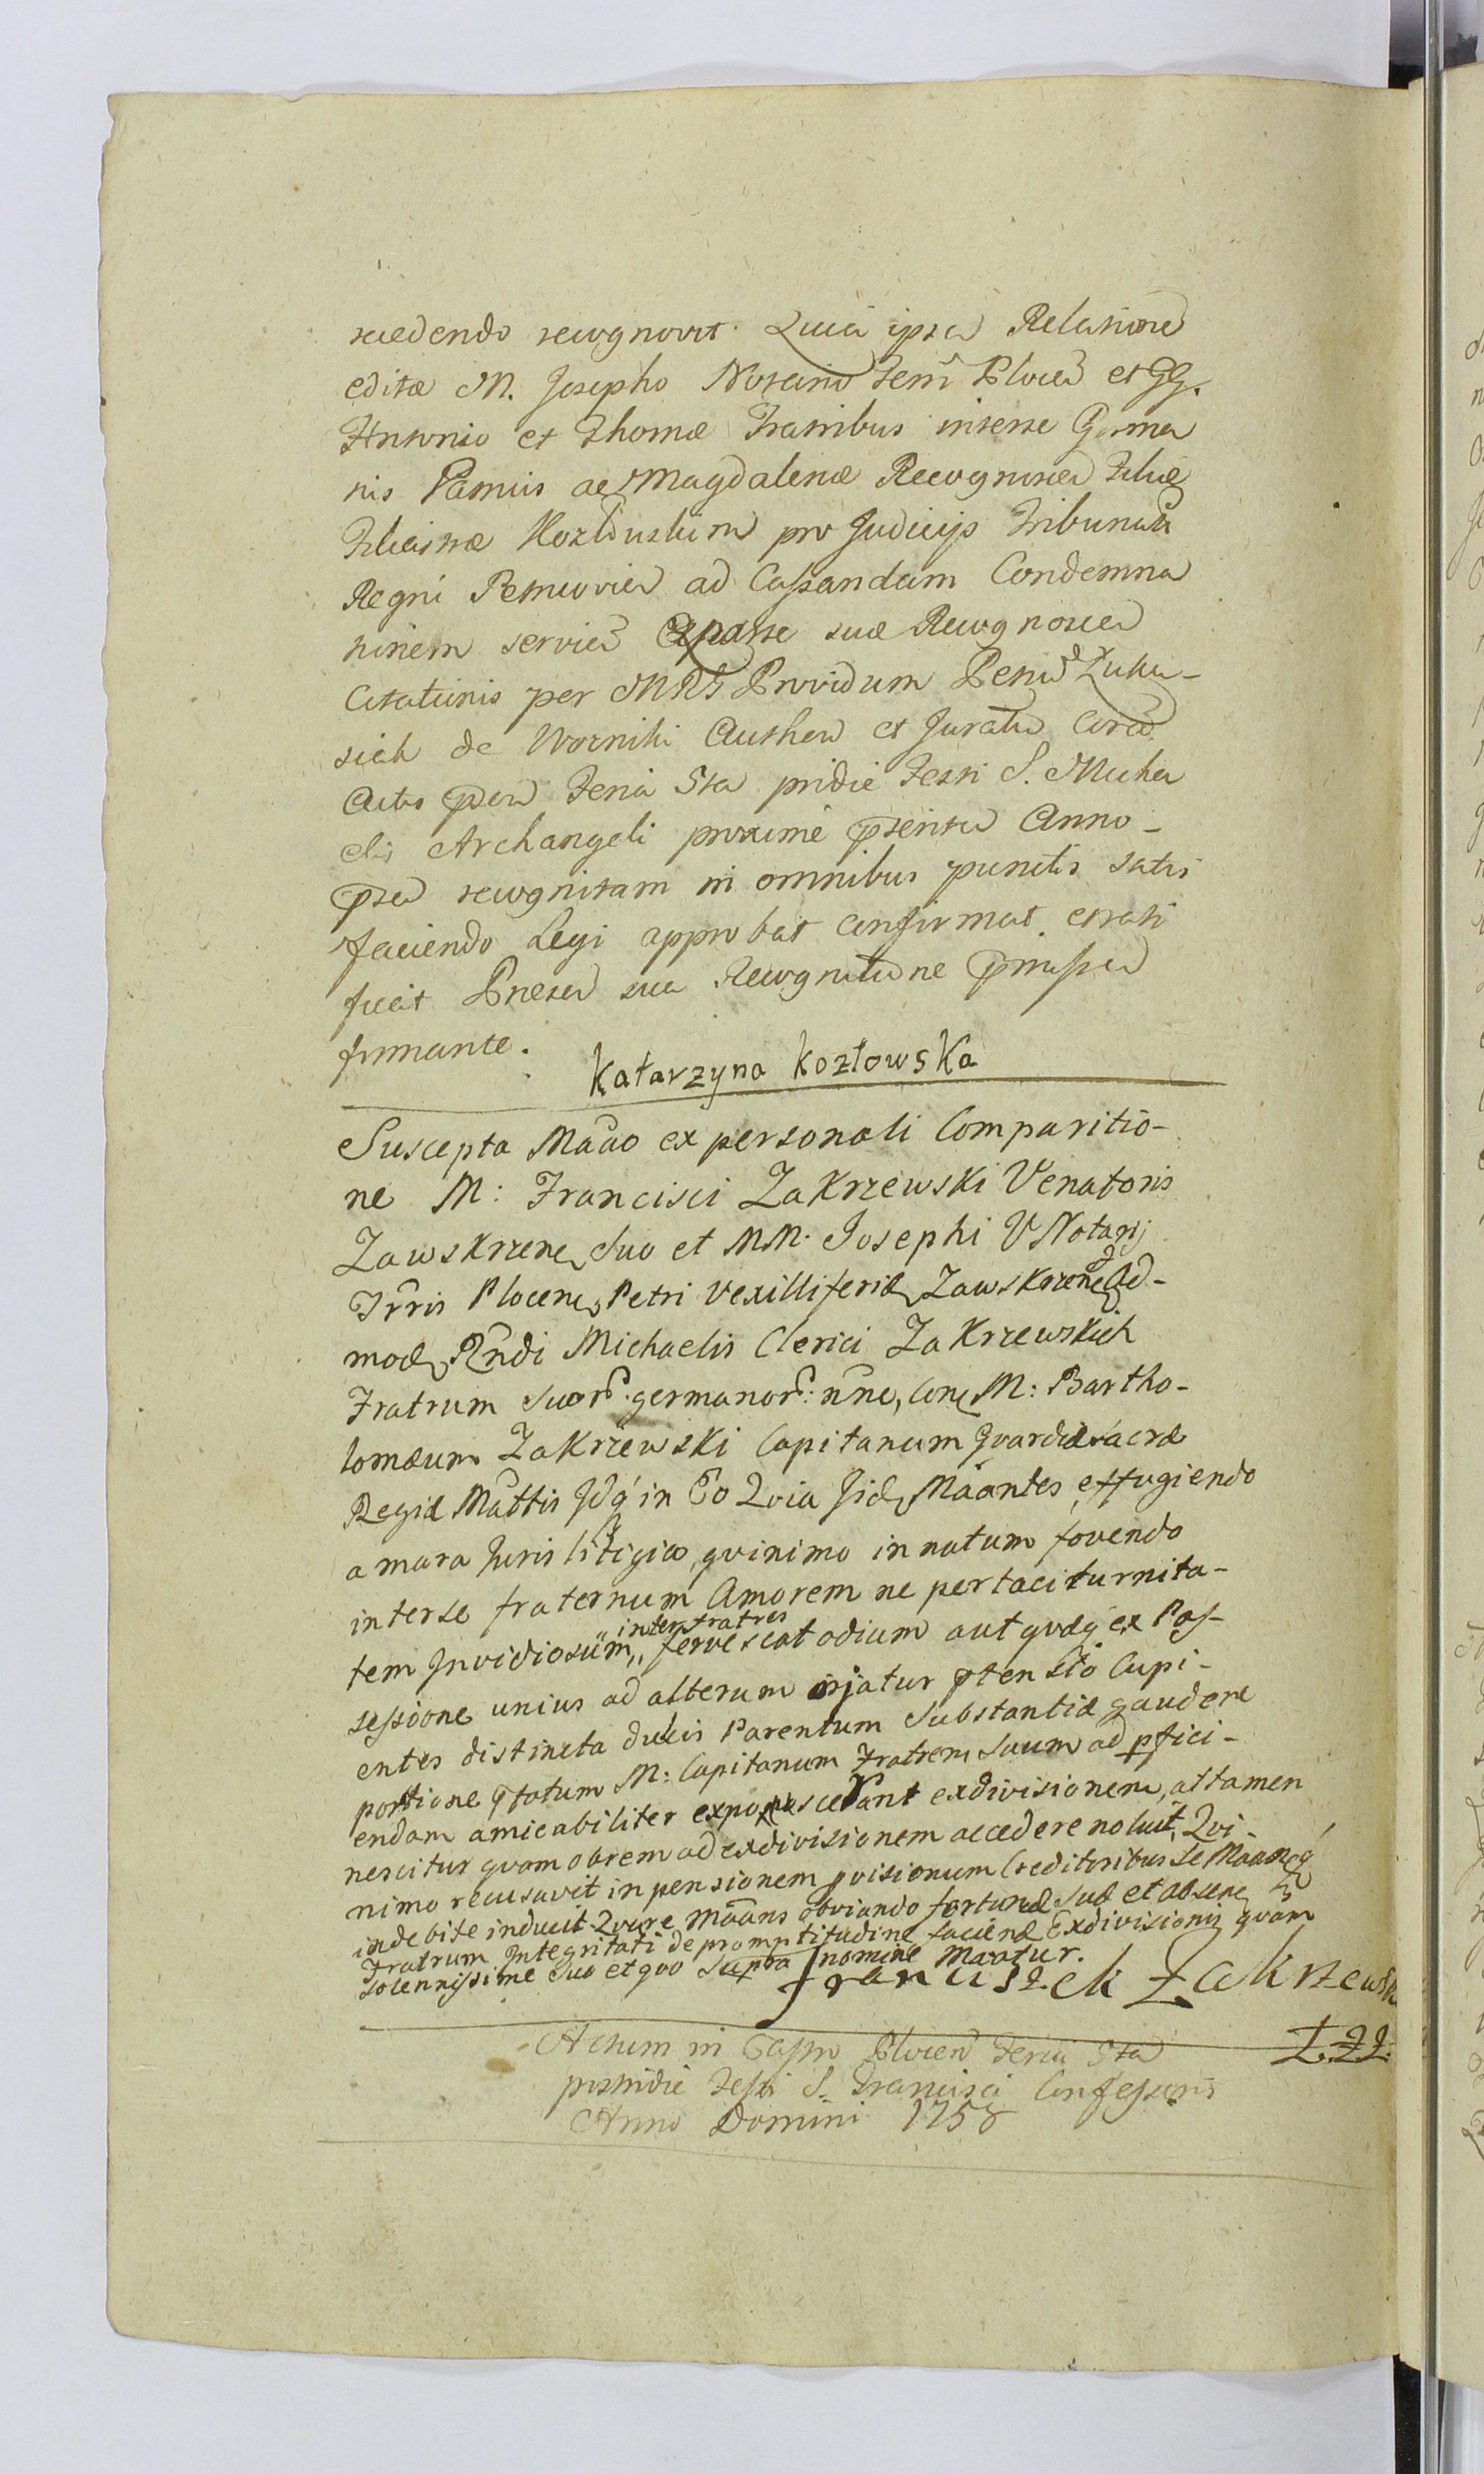 cedendo recognovit. Quia ipsa Relatione
edita M. Josepho Notario Terrī Plocen et GG.
Antonio et Thoma Fratribus interse Germa
nis Patruis ac Magdalenæ Recognoscen Filiæ
Filiastræ Kozłowskim pro Judicijs Tribunalis
Regni Petricovien ad Cassandam Condemna
tionem servien Exparte sua Recognoscen
Citationis per MRS Providum Petrum Łuka-
siak de Woźniki Authen et Juratū Corā
Actis præsen Feria Sta pridie Festi S. Micha
elis Archangeli proxime præterita Anno -
præsen recognitam in omnibus punctis satis
faciendo Legi approbat confirmat et rati
ficat Præsen sua Recognitione præmissa
firmante.
Katarzyna Kozłowska
Suscepta Mãão ex personali Comparitio-
ne M: Francisci Zakrzewski Venatoris
Zawskrzene Suo et MM. Josephi V Notarij
Trris Plocene, Petri Vexilliferid Zawskrzene Ad-
mod Rndi Michaelis Clerici Zakrzewskich
Fratrum Suor: germanor: nne, Cone M: Bartho-
lomæum Zakrzewski Capitanum Gvardiæ Sacræ
Regiæ Mattis Idq in Eo Qvia Iid Mãantes effugiendo
amara Juris litigia, qvinimo innatum fovendo
interse fraternum Amorem ne pertaciturnita-
tem Invidiosum „ inter fratres fervescat odium aut qvdq ex Pos-
sessione unius ad alterum orjatur ptensio Cupi-
entes distincta dulcis Parentum Substantiæ gaudere
portione qtotum M: Capitanum Fratrem Suum ad pfici-
endam amicabiliter expoposcerant exdivisionem, attamen
nescitur qvamobrem ad exdivisionem accedere noluit, Qvi-
nimo recusavit in pensionem pvisionum Creditoribus Se Maanq
indebite inducit Qvare Mãans obviando fortunæ Suæ et absene
Fratrum Integritati de promptitudine faciendæ Exdivisionis qvam
Solennissime Suo et qvo Supra nomine Maatur.
Franciszek Zakrzewski
Ł. Z Z.
Actum in Castro Plocen Feria Sta
postridie Festi S. Francisci Confessoris
Anno Domini 1758